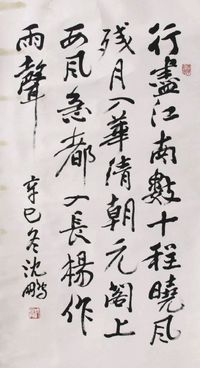 行盡江南數十程曉風
残月入華清朝元閣上
西風急都入長楊作
雨聲
辛巳冬沈鵬